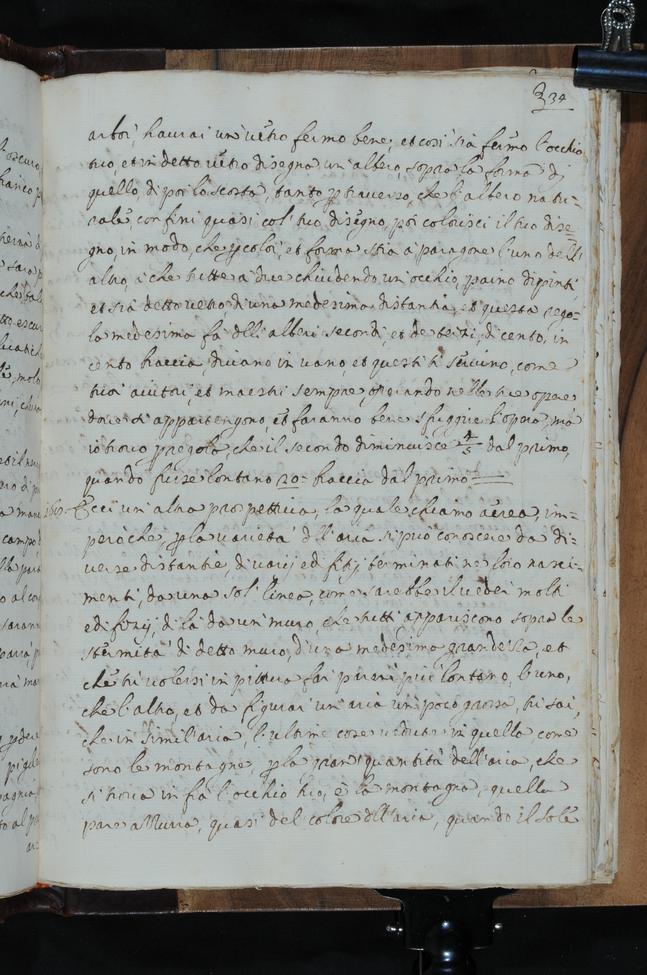 34
arbori, haurai un uetro fermo bene, et cosi stia fermo l'occhio
tuo, et in detto uetro disegna un albero, sopra la forma di
quello, di poi lo scosta, tanto p trauerso, che l'albero natu-
rale, confini quasi col tuo disegno, poi colorisci il tuo dise-
gno, in modo, che p colori, et forma stia a paragone l'uno dell'
altro, ò che tutte a due chiudendo un occhio, paino dipinti,
et sia detto uetro, d'una medesima distantia, et questa rego-
la medesima fà dlli alberi secondi, et de terzi, di cento, in
cento braccia, di mano in mano, et questi ti seruino, come
tuoi aiutori, et maestri sempre, operando nelle tue opere
doue si appartengono, et faranno bene sfuggire l'opera, ma
io trouo p regola, che il secondo diminuisce 4/5 dal primo,
quando fusse lontano 20 braccia dal primo
Ecci un altra prospettiua, la quale chiamo aerea, im-
però che, p la uarietà dll'aria si può conoscere da di-
uerse distantie, di uarij edifitij terminati ne loro nasci-
menti, da una sol' linea, come sarebbe il ueder molti
edifizij, di là da un muro, che tutti appariscono sopra le
stremità di detto muro, d'una medesima grandezza, et
che tu uolessi in pittura far parer più lontano, l'uno,
che l'altro, et da figurar un'aria un poco grossa, tu sai,
che in simil'aria, l'ultime cose uedute in quella come
sono le montagne, p la gran quantità dell'aria, che
si troua in frà l'occhio tuo, e la montagna, quella
pare azzurra, quasi del colore dll'aria, quando il sole